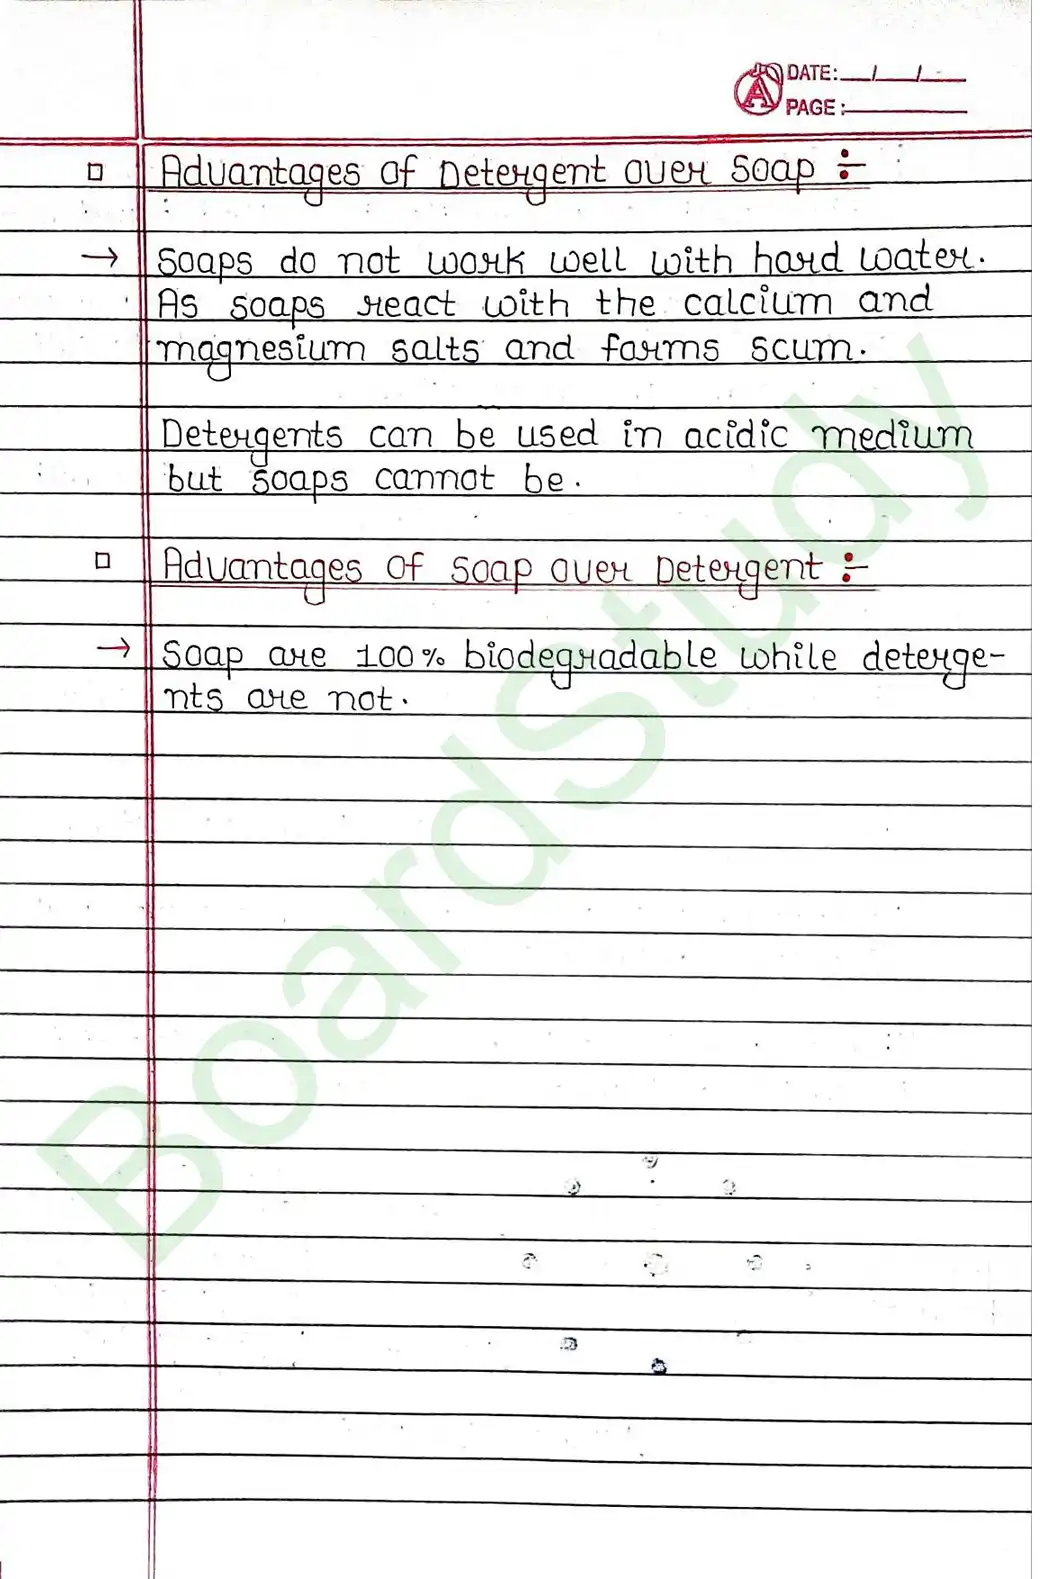 DATE: __/__/__
PAGE: ______
□ Advantages of Detergent over Soap :-
→ Soaps do not work well with hard water.
As soaps react with the calcium and
magnesium salts and forms scum.
Detergents can be used in acidic medium
but soaps cannot be.
□ Advantages of Soap over Detergent :-
→ Soap are 100% biodegradable while deterge-
nts are not.
BoardStudy